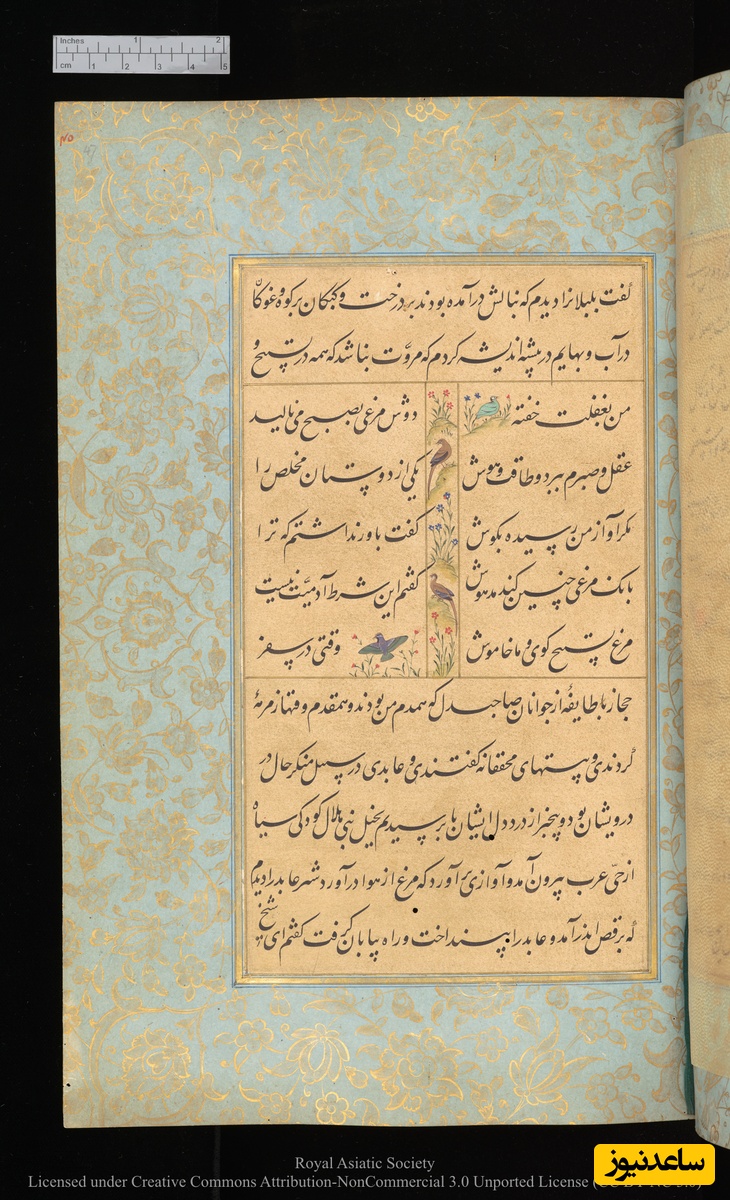 Inches 1 2
cm 1 2 3 4 5
٧٥
47
گفت بلبلانرا دیدم که بنالش درآمده بودند بر درخت و کبکان بر کوه و غوکان
در آب و بهایم در بیشه اندیشه کردم که مروت نباشد که همه در تسبیح و
من بغفلت خفته دوش مرغی بصبح می نالید
عقل و صبرم ببرد و طاقت و هوش یکی از دوستان مخلص را
مگر آواز من رسیده بگوش گفت باور نداشتم که ترا
بانک مرغی چنین کند مدهوش گفتم این شرط آدمیت نیست
مرغ تسبیح گوی و ما خاموش وقتی در سفر
حجاز با طایفه از جوانان صاحبدل که همدم من بودند و همقدم وقتها زمزمه
کردندی و بیتهای محققانه گفتندی و عابدی در سبیل منکر حال در
درویشان بود و بیخبر از درد دل ایشان تا برسیدیم بخیل بنی هلال کودکی سیاه
از حی عرب بیرون آمد و آوازی برآورد که مرغ از هوا درآورد شتر عابد را دیدم
که برقص اندر آمد و عابد را بینداخت و راه بیابان گرفت گفتم ای شیخ
Royal Asiatic Society
Licensed under Creative Commons Attribution-NonCommercial 3.0 Unported License
ساعدنیوز